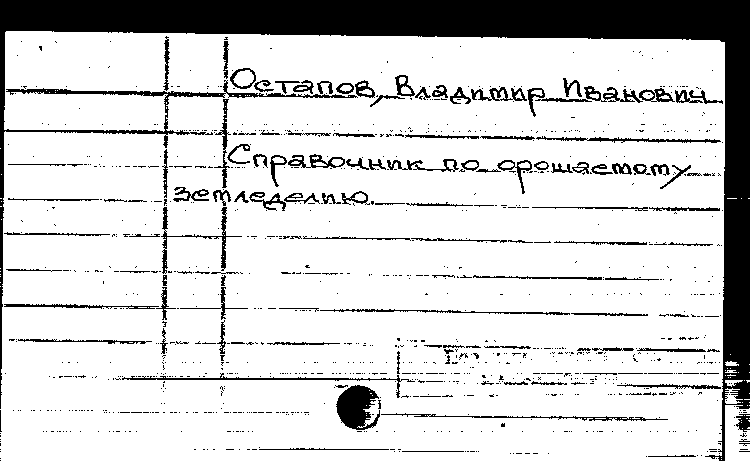 Остапов, Владимир Иванович
Справочник по орошаемому
земледелию.